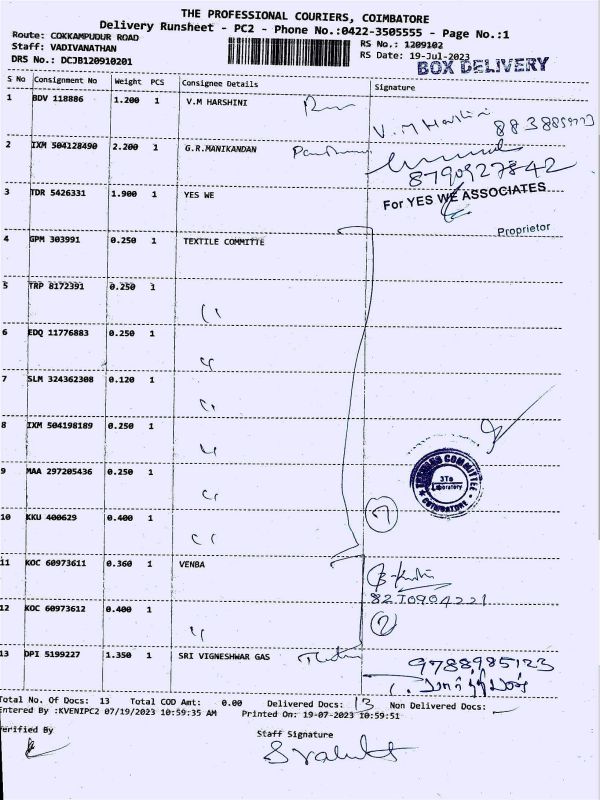 THE PROFESSIONAL COURIERS, COIMBATORE
Delivery Runsheet - PC2 - Phone No.:0422-3505555 - Page No.:1
Route: COKKAMPUDUR ROAD
Staff: VADIVANATHAN
DRS No.: DCJB120910201
RS No.: 1209102
RS Date: 19-Jul-2023
BOX DELIVERY
S No Consignment No Weight PCS Consignee Details Signature
1 BDV 118886 1.200 1 V.M HARSHINI
V.M Harshini
2 IXM 504128490 2.200 1 G.R.MANIKANDAN
8790927842
3 TDR 5426331 1.900 1 YES WE
For YES WE ASSOCIATES
Proprietor
4 GPM 303991 0.250 1 TEXTILE COMMITTE
5 TRP 8172391 0.250 1 "
6 EDQ 11776883 0.250 1 "
7 SLM 324362308 0.120 1 "
8 IXM 504198189 0.250 1 "
9 MAA 297205436 0.250 1 "
TEXTILES COMMITTEE
3Ts
Laboratory
COIMBATORE
10 KKU 400629 0.400 1 "
7
11 KOC 60973611 0.360 1 VENBA
12 KOC 60973612 0.400 1 "
2
13 DPI 5199227 1.350 1 SRI VIGNESHWAR GAS
9788985123
Total No. Of Docs: 13 Total COD Amt: 0.00 Delivered Docs: 13 Non Delivered Docs:
Entered By :KVENIPC2 07/19/2023 10:59:35 AM Printed On: 19-07-2023 10:59:51
Verified By
Staff Signature